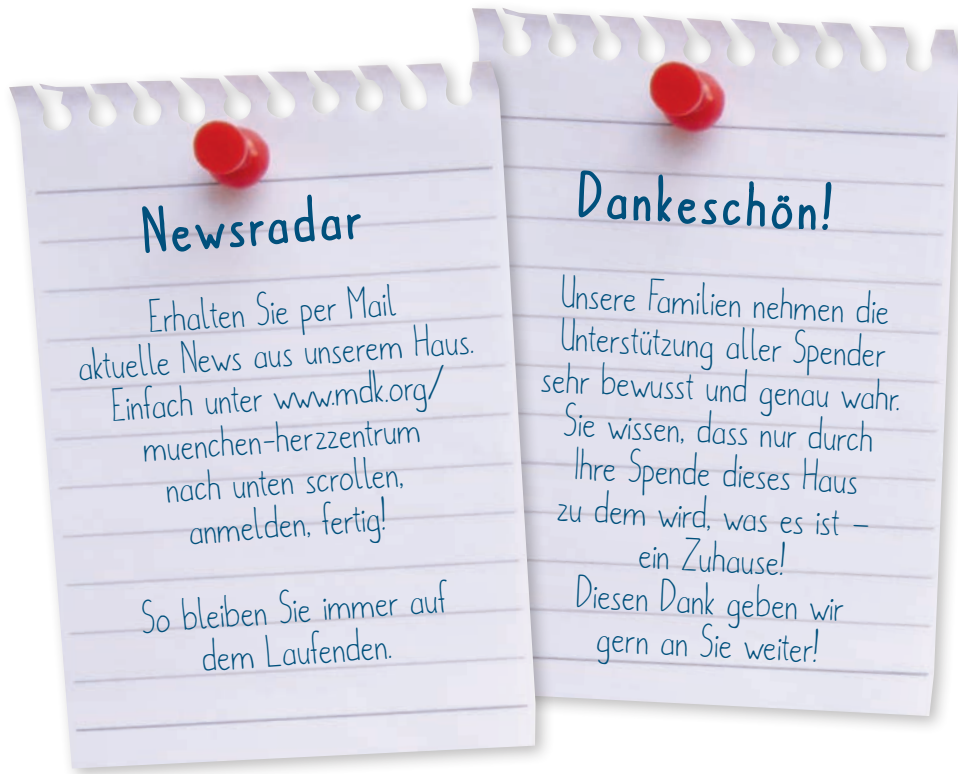 Newsradar
Erhalten Sie per Mail
aktuelle News aus unserem Haus.
Einfach unter www.mdk.org/
muenchen-herzzentrum
nach unten scrollen,
anmelden, fertig!
So bleiben Sie immer auf
dem Laufenden.
Dankeschön!
Unsere Familien nehmen die
Unterstützung aller Spender
sehr bewusst und genau wahr.
Sie wissen, dass nur durch
Ihre Spende dieses Haus
zu dem wird, was es ist –
ein Zuhause!
Diesen Dank geben wir
gern an Sie weiter!